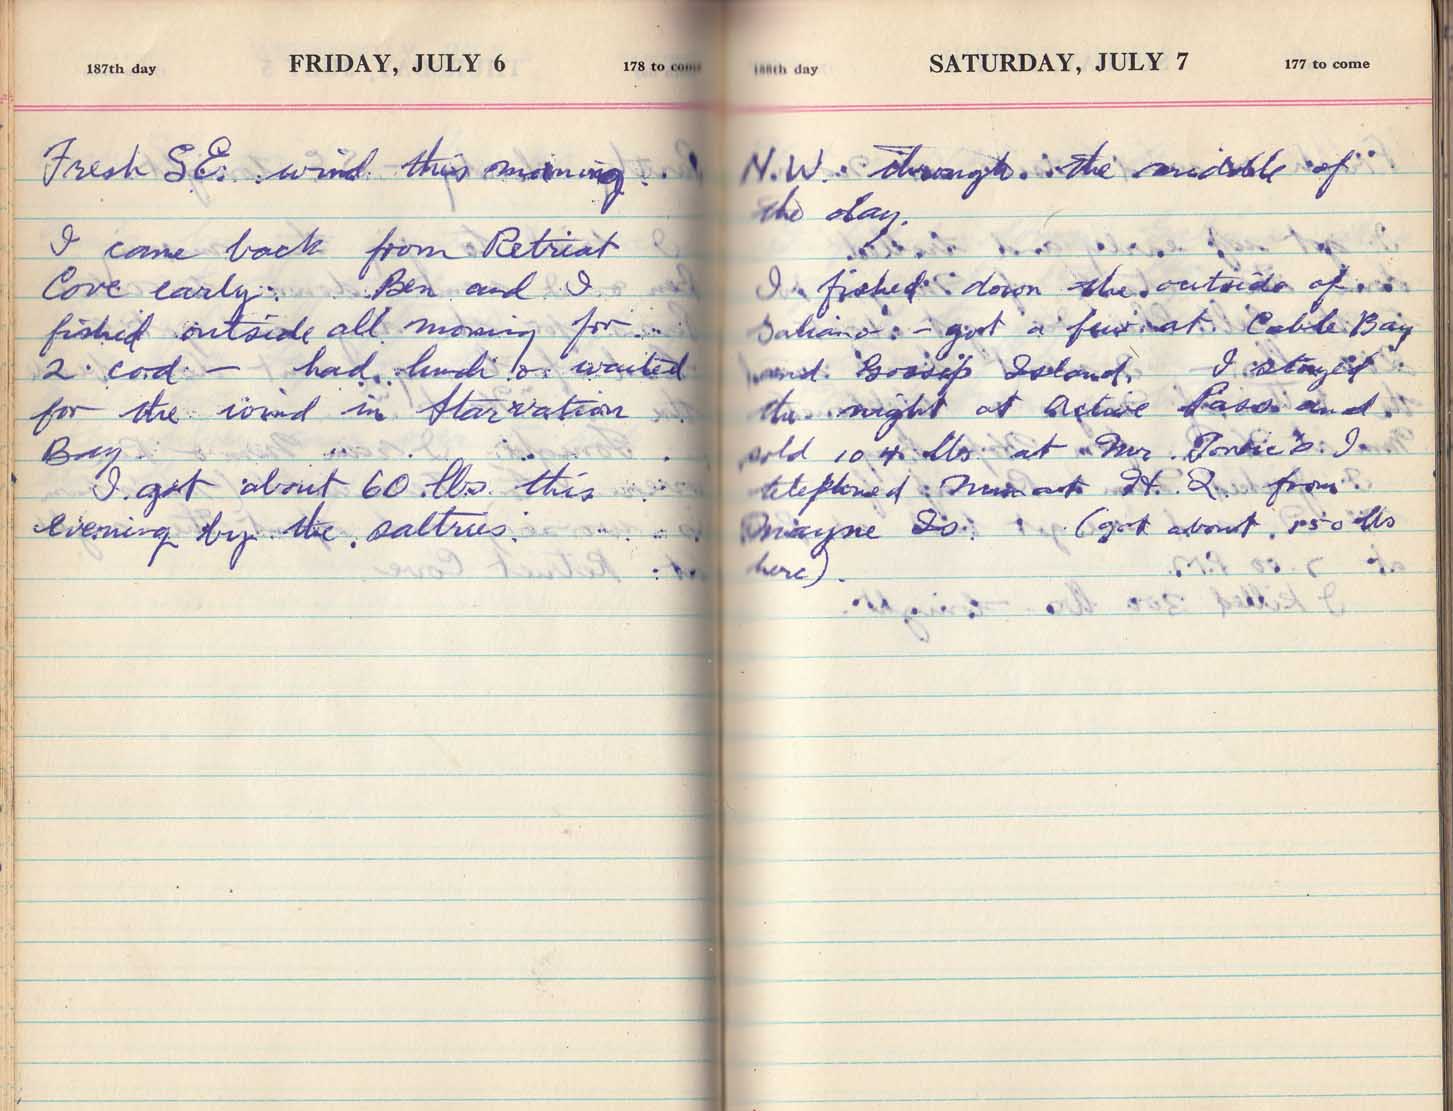 187th day FRIDAY, JULY 6 178 to come
Fresh S.E. wind this morning.
I came back from Retreat
Cove early. Ben and I
fished outside all morning for
2 cod — had lunch & waited
for the wind in Starvation
Bay.
I got about 60 lbs. this
evening by the saltries.
188th day SATURDAY, JULY 7 177 to come
N.W. through the middle of
the day.
I fished down the outside of
Galiano - got a few at Cable Bay
and Gossip Island. I stayed
the night at Active Pass and
sold 104 lbs at Mr.
telephoned Mum at from
Mayne Is. (got about 150 lbs
here).